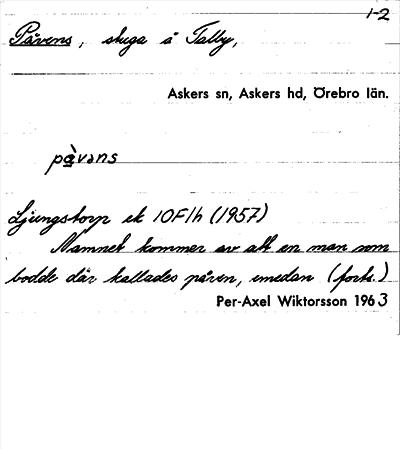 1-2
Påvens, stuga å Talby,
Askers sn, Askers hd, Örebro län.
på̀vəns
Ljungstorp ek 10F1h (1957)
Namnet kommer av att en man som
bodde där kallades påven, emedan (forts.)
Per-Axel Wiktorsson 1963